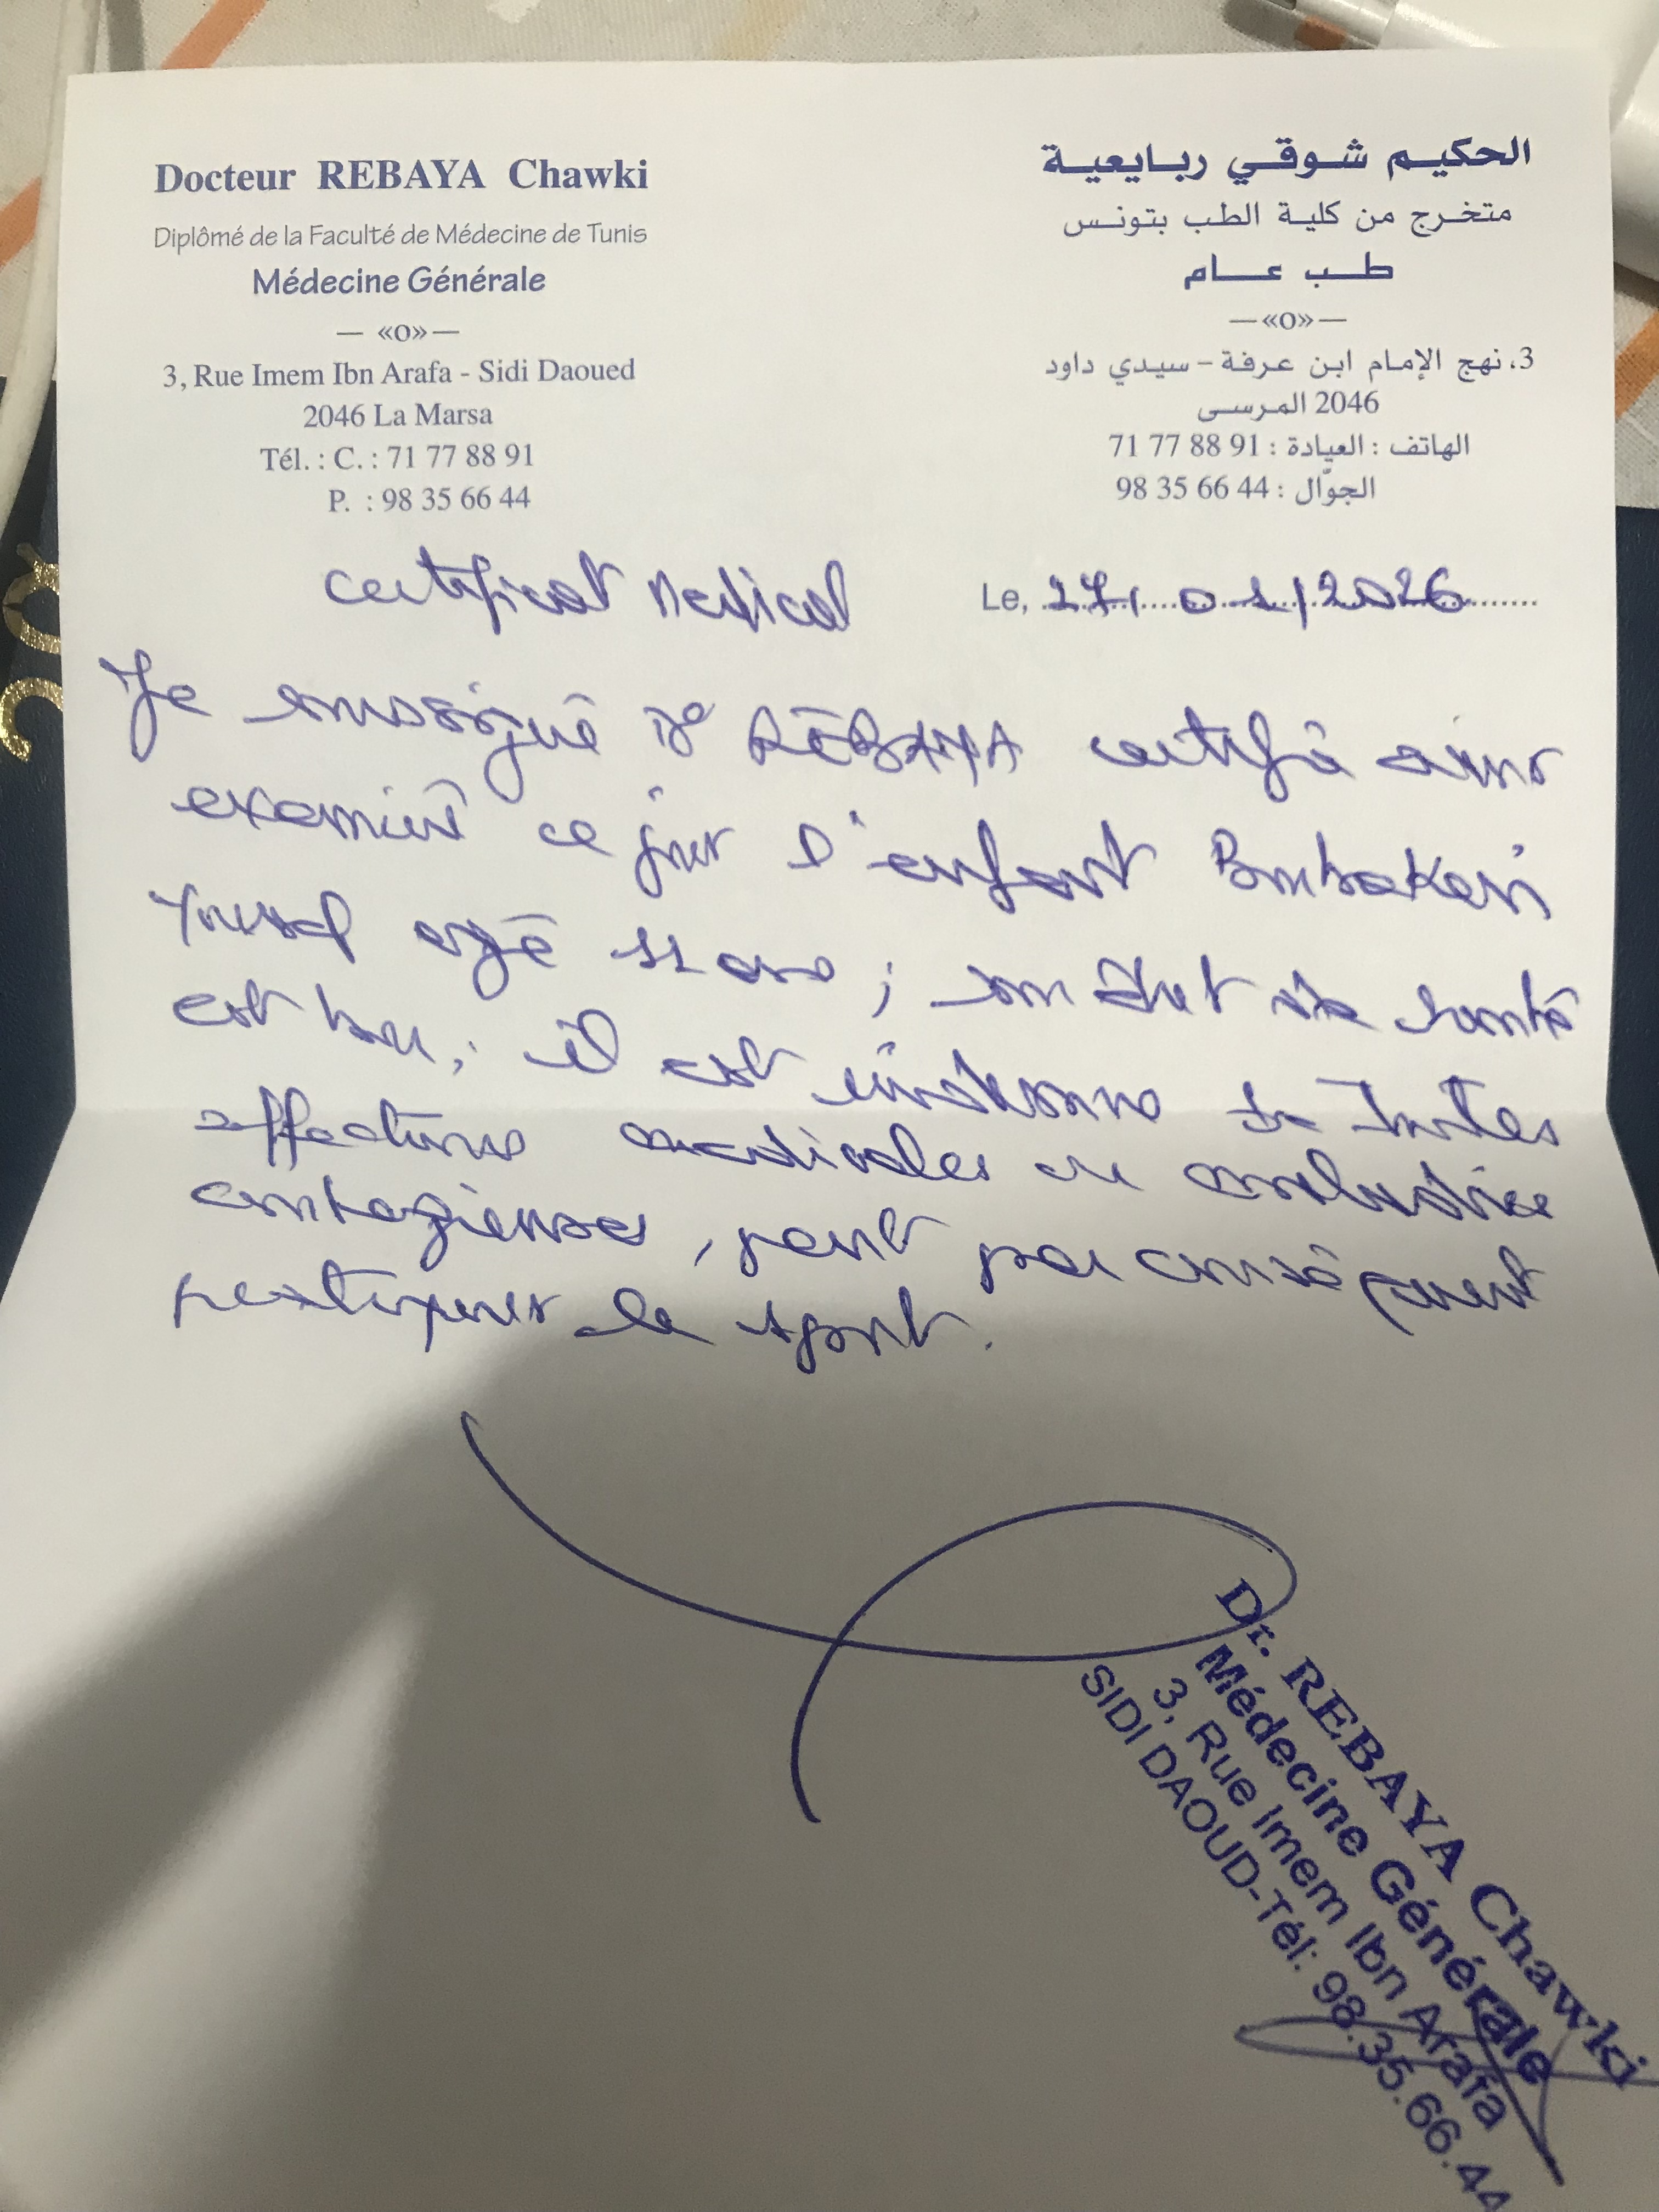 Docteur REBAYA Chawki
Diplômé de la Faculté de Médecine de Tunis
Médecine Générale
— «O» —
3, Rue Imem Ibn Arafa - Sidi Daoued
2046 La Marsa
Tél. : C. : 71 77 88 91
P. : 98 35 66 44
الحكيم شوقي ربايعية
متخرج من كلية الطب بتونس
طب عام
— «O» —
3، نهج الإمام ابن عرفة - سيدي داود
2046 المرسى
الهاتف : العيادة : 91 88 77 71
الجوّال : 44 66 35 98
certificat Medical
Le, 27/01/2026
Je soussigné Dr REBAYA certifie avoir
examiné ce jour l'enfant
Yousef agé 11 ans ; son état de santé
est bon, il est indemne de toutes
affections médicales ou maladies
contagieuses, peut par conséquent
pratiquer le sport.
Dr. REBAYA Chawki
Médecine Générale
3, Rue Imem Ibn Arafa
SIDI DAOUD-Tél: 98.35.66.44